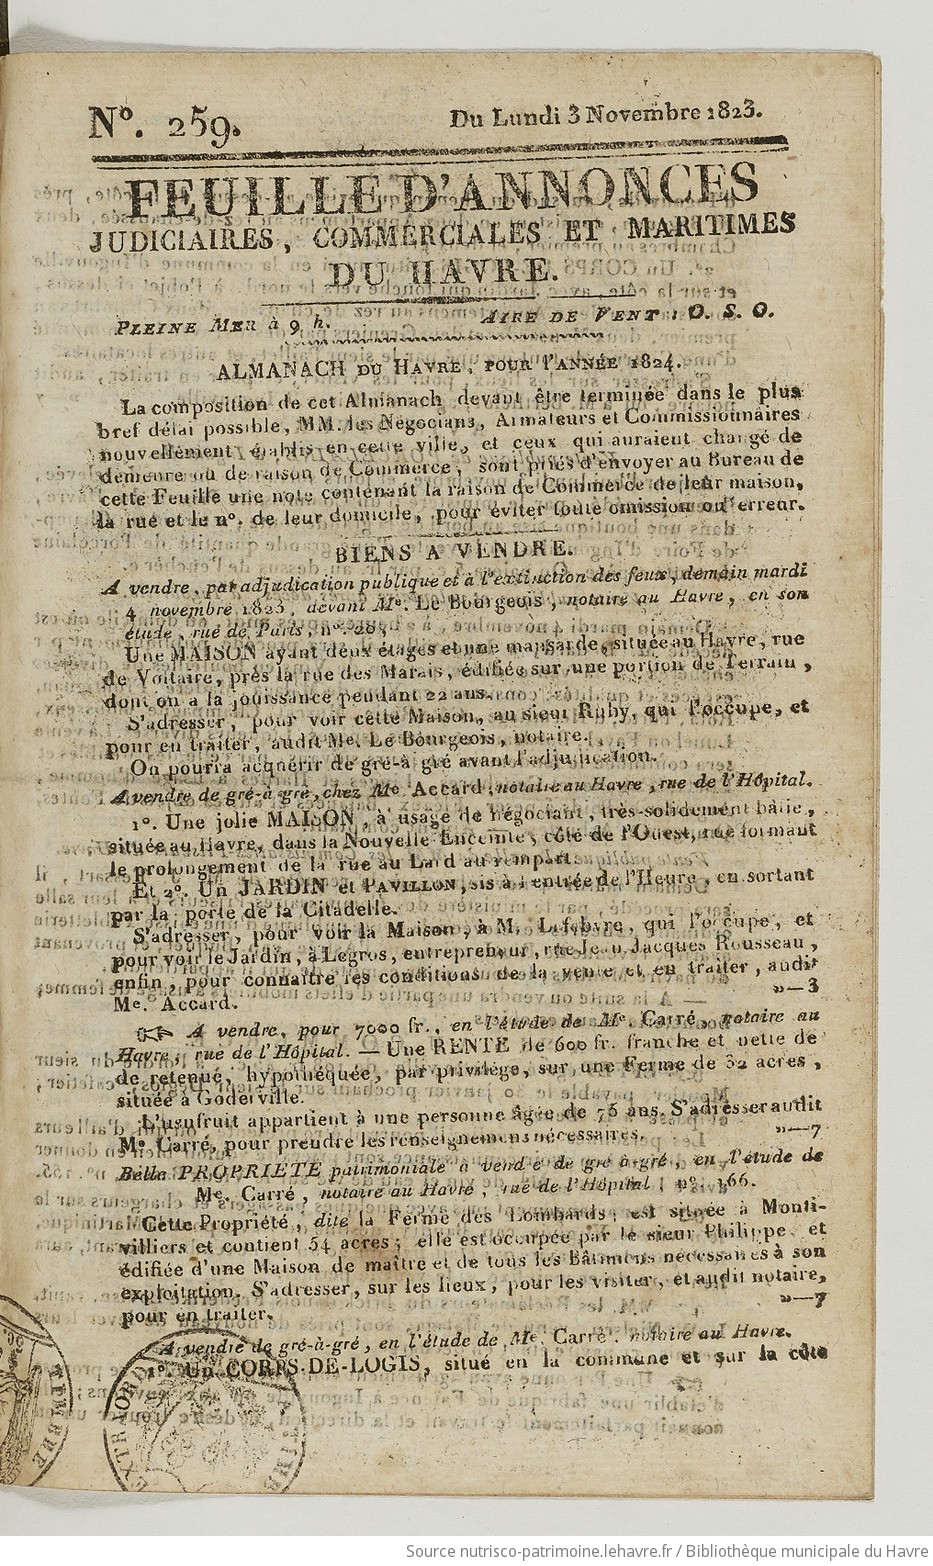 N°. 259.
Du Lundi 3 Novembre 1823.
FEUILLE D'ANNONCES
JUDICIAIRES, COMMERCIALES ET MARITIMES
DU HAVRE.
PLEINE MER à 9 h.
AIRE DE VENT : O. S. O.
ALMANACH DU HAVRE, POUR L'ANNÉE 1824.
La composition de cet Almanach devant être terminée dans le plus
bref délai possible, MM. les Négocians, Armateurs et Commissionnaires
nouvellement établis en cette ville, et ceux qui auraient changé de
demeure ou de raison de Commerce, sont priés d'envoyer au Bureau de
cette Feuille une note contenant la raison de Commerce de leur maison,
la rue et le n°. de leur domicile, pour éviter toute omission ou erreur.
BIENS A VENDRE.
A vendre, par adjudication publique et à l'extinction des feux, demain mardi
4 novembre 1823, devant Me. Le Bourgeois, notaire au Havre, en son
étude, rue de Paris, n°. 28,
Une MAISON ayant deux étages et une mansarde, située au Havre, rue
de Voltaire, près la rue des Marais, édifiée sur une portion de Terrain,
dont on a la jouissance pendant 22 ans.
S'adresser, pour voir cette Maison, au sieur Ruby, qui l'occupe, et
pour en traiter, audit Me. Le Bourgeois, notaire.
On pourra acquérir de gré-à gré avant l'adjudication.
A vendre de gré-à gré, chez Me Accard, notaire au Havre, rue de l'Hôpital.
1°. Une jolie MAISON, à usage de négociant, très-solidement bâtie,
située au Havre, dans la Nouvelle Enceinte, côté de l'Ouest, rue formant
le prolongement de la rue au Lard au rempart.
Et 2°. Un JARDIN et PAVILLON, sis à l'entrée de l'Heure, en sortant
par la porte de la Citadelle.
S'adresser, pour voir la Maison, à M. Lefebvre, qui l'occupe, et
pour voir le Jardin, à Legros, entrepreneur, rue Jean Jacques Rousseau,
enfin, pour connaître les conditions de la vente et en traiter, audit
Me. Accard.
»—3
A vendre, pour 7000 fr., en l'étude de Me. Carré, notaire au
Havre, rue de l'Hôpital. — Une RENTE de 600 fr. franche et nette de
de retenue, hypothéquée, par privilége, sur une Ferme de 32 acres,
située à Goderville.
L'usufruit appartient à une personne âgée de 75 ans. S'adresser audit
Me Carré, pour prendre les renseignemens nécessaires.
»—7
Belle PROPRIETÉ patrimoniale à vendre de gré à-gré, en l'étude de
Me. Carré, notaire au Havre, rue de l'Hôpital, n°. 166.
Cette Propriété, dite la Ferme des Lombards, est située à Monti-
villiers et contient 54 acres; elle est occupée par le sieur Philippe et
édifiée d'une Maison de maître et de tous les Bâtimens nécessaires à son
exploitation. S'adresser, sur les lieux, pour les visiter, et audit notaire,
pour en traiter.
»—7
A vendre de gré-à-gré, en l'étude de Me. Carré, notaire au Havre.
1°. Un CORPS-DE-LOGIS, situé en la commune et sur la côte
TIMBRE
EXTRAORD
TIMBRE
Source nutrisco-patrimoine.lehavre.fr / Bibliothèque municipale du Havre